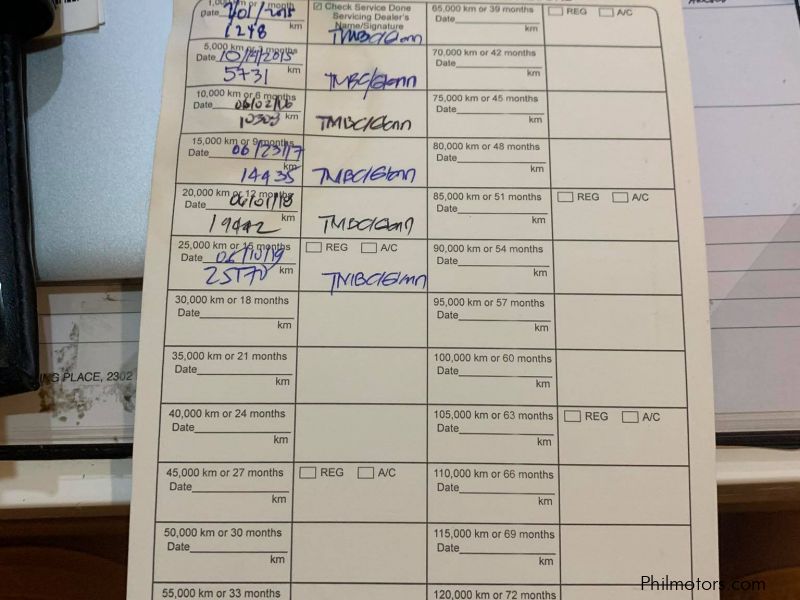 Date
1248
☑ Check Service Done
Servicing Dealer's
Name/Signature
TMBC/Glenn
5,000 km or 3 months
Date 10/14/2015
5731 km
TMBC/Glenn
10,000 km or 6 months
Date
10303 km
TMBC/Glenn
15,000 km or 9 months
Date 06/23/17
14435 km
TMBC/Glenn
20,000 km or 12 months
Date 06/01/18
19442 km
TMBC/Glenn
25,000 km or 15 months
Date 06/10/19
25170 km
REG A/C
TMBC/Glenn
30,000 km or 18 months
Date
km
35,000 km or 21 months
Date
km
40,000 km or 24 months
Date
km
45,000 km or 27 months
Date
km
REG A/C
50,000 km or 30 months
Date
km
55,000 km or 33 months
65,000 km or 39 months
Date
km
REG A/C
70,000 km or 42 months
Date
km
75,000 km or 45 months
Date
km
80,000 km or 48 months
Date
km
85,000 km or 51 months
Date
km
REG A/C
90,000 km or 54 months
Date
km
95,000 km or 57 months
Date
km
100,000 km or 60 months
Date
km
105,000 km or 63 months
Date
km
REG A/C
110,000 km or 66 months
Date
km
115,000 km or 69 months
Date
km
120,000 km or 72 months
PLACE, 2302
Philmotors.com